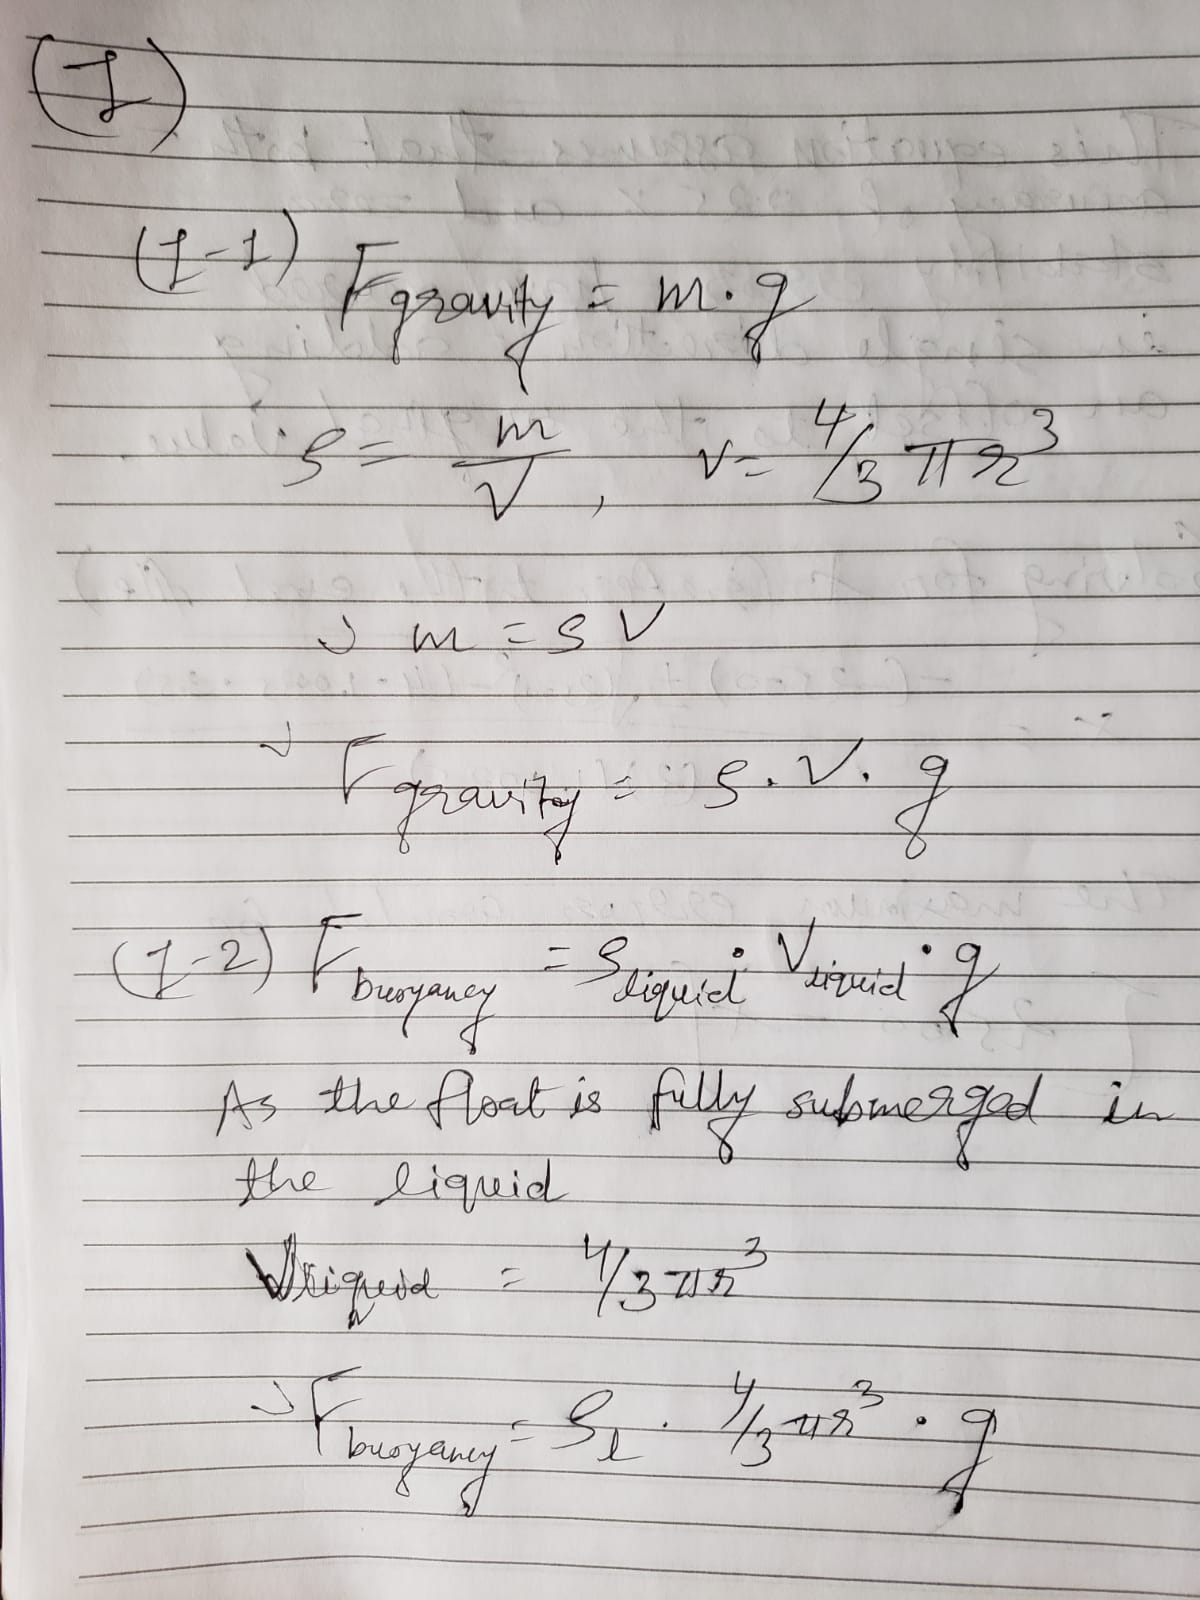 (1)
(1-1) Fgravity = m·g
ρ = m/V, V = 4/3 πr³
↲ m = ρV
↲ Fgravity = ρ·V·g
(1-2) Fbuoyancy = ρliquid · Vliquid · g
As the float is fully submerged in
the liquid
Vliquid = 4/3 πr³
↲ Fbuoyancy = ρl · 4/3 πr³ · g